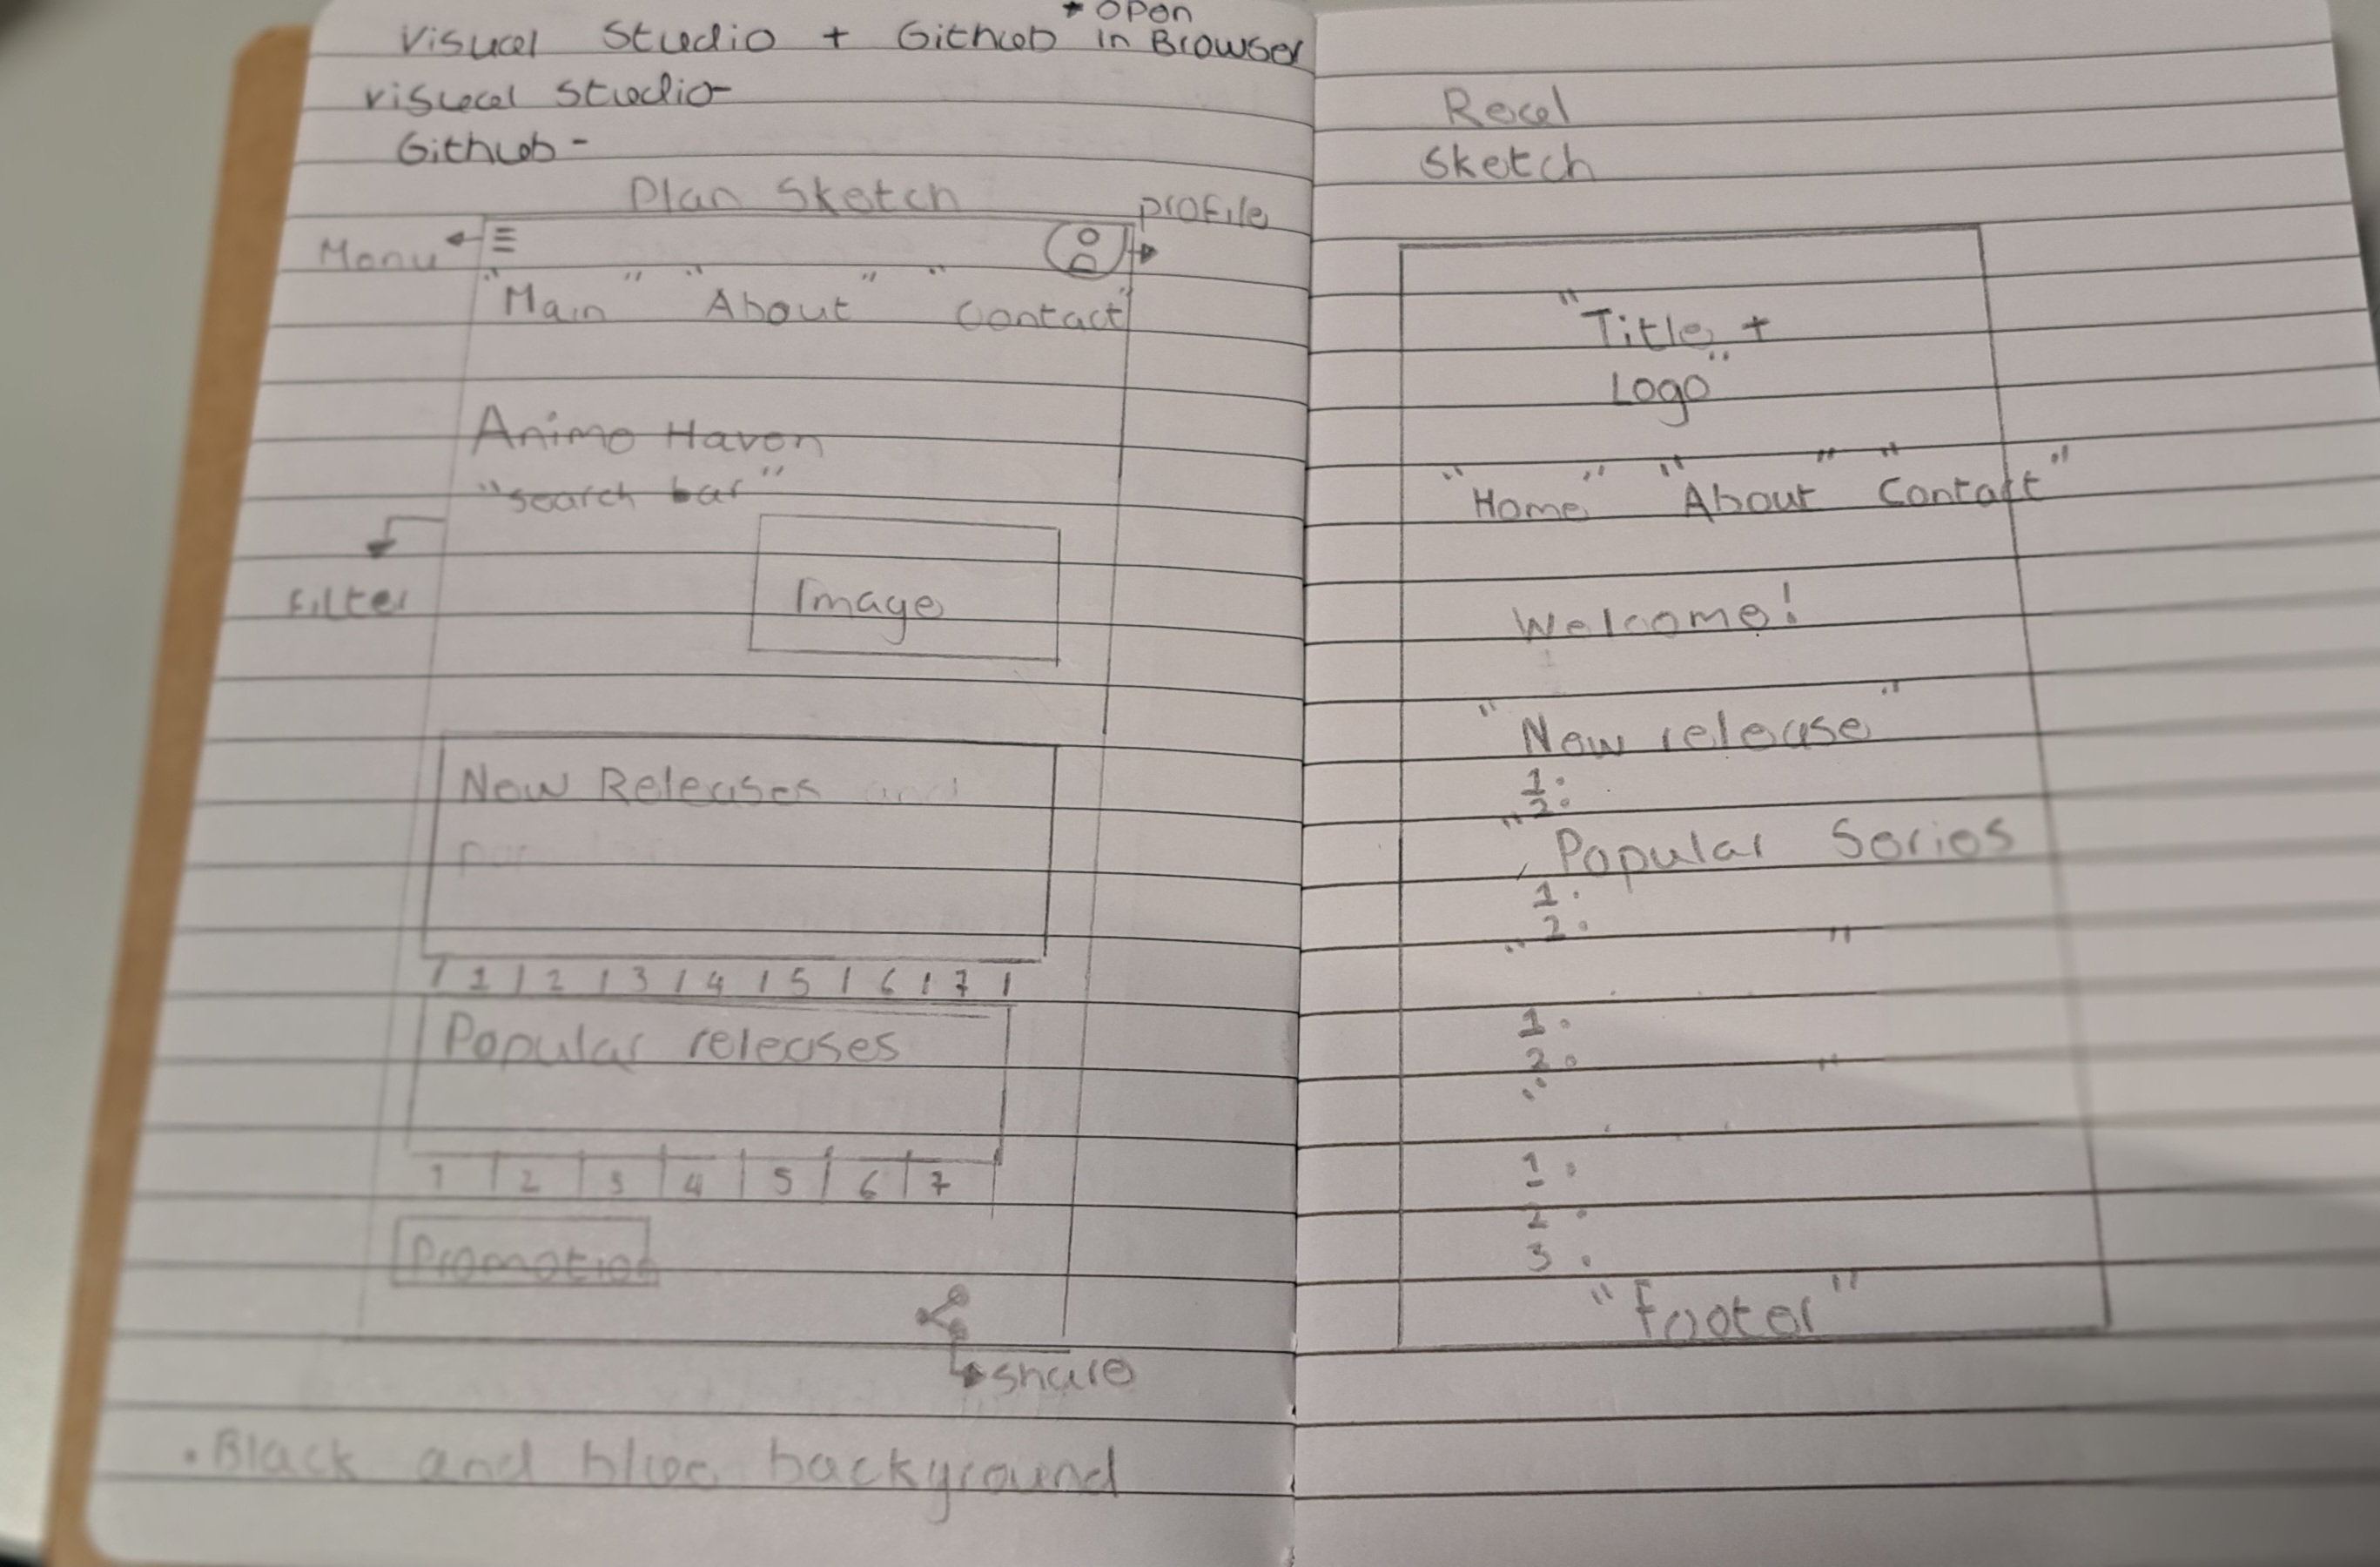 * open
Visual Studio + Github in Browser
Visual studio-
Github-
Plan Sketch
profile
Menu
"Main" "About" "Contact"
Anime Haven
"search bar"
Filter
Image
New Releases and
1 2 3 4 5 6 7
Popular releases
1 2 3 4 5 6 7
Promotion
share
. Black and blue background
Real
Sketch
"Title +
Logo"
"Home" "About" "Contact"
Welcome!
"New release"
1.
2.
"Popular Series
1.
2.
" "
1.
2. "
"
1.
2.
3.
"footer"